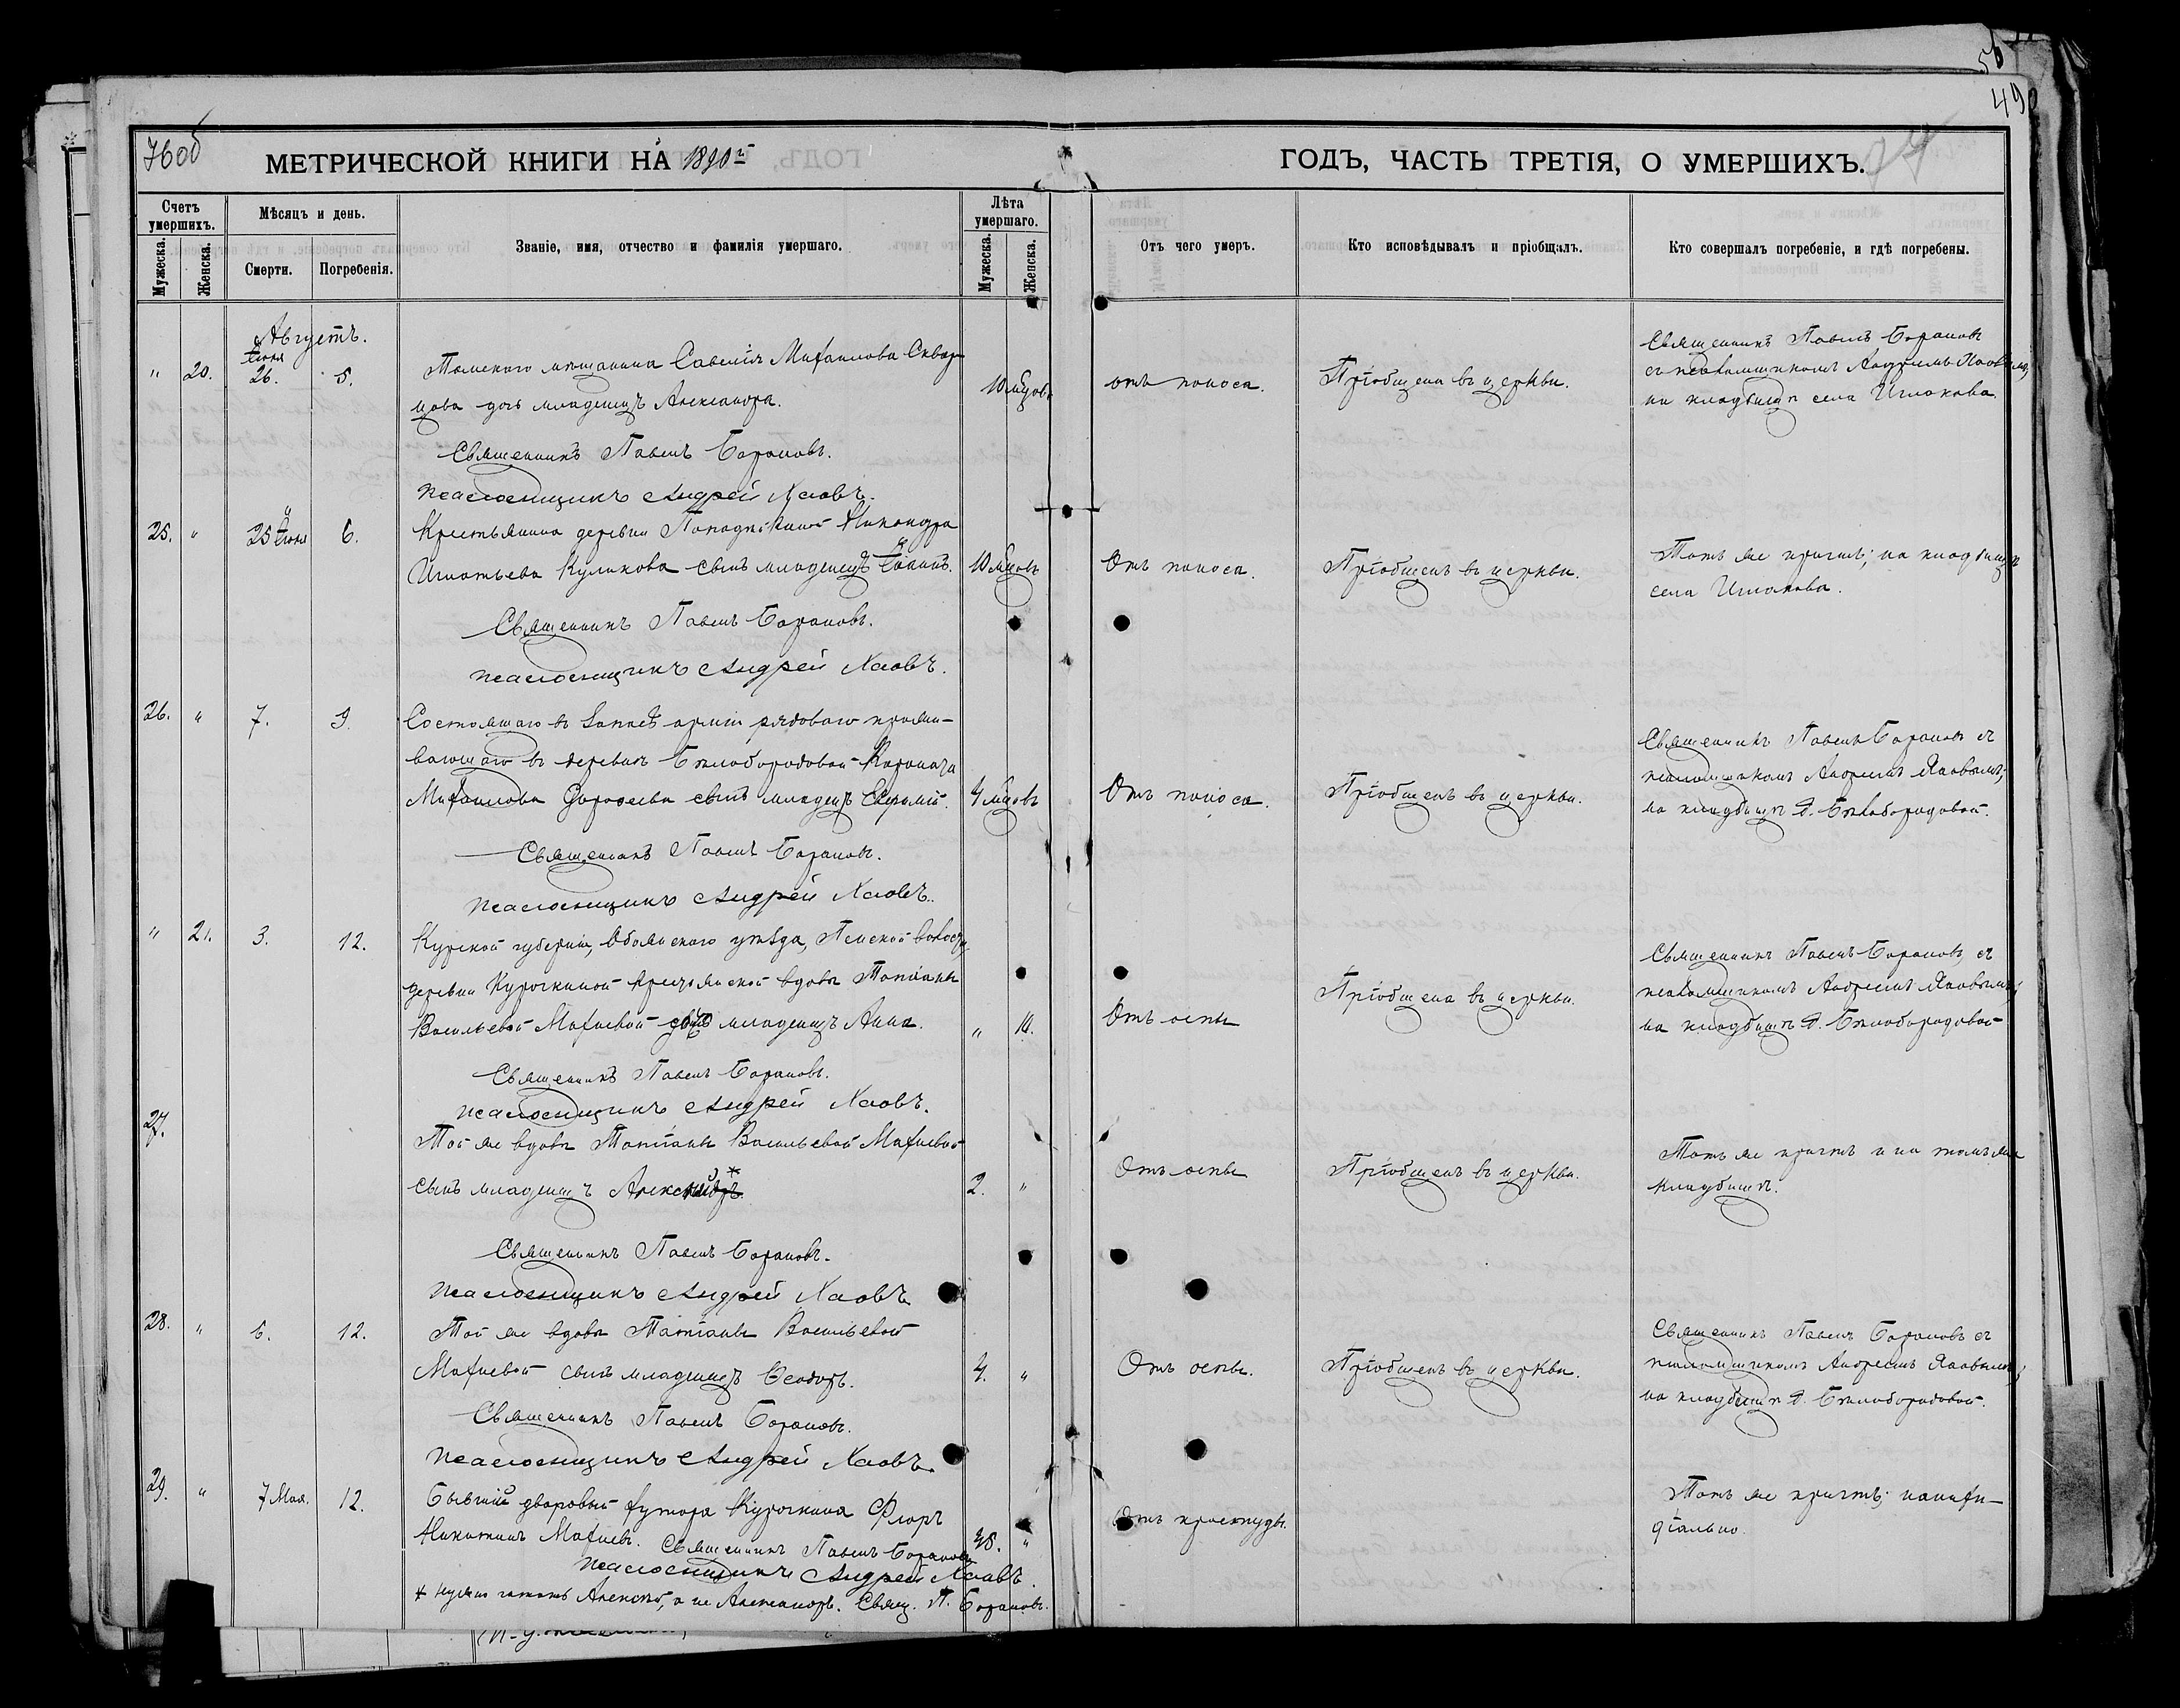 760б
490
МЕТРИЧЕСКОЙ КНИГИ НА 1890й
ГОДЪ, ЧАСТЬ ТРЕТІЯ, О УМЕРШИХЪ.
Счетъ умершихъ.
Мужеска.
Женска.
Мѣсяцъ и день.
Смерти.
Погребенія.
Званіе, имя, отчество и фамилія умершаго.
Лѣта умершаго.
Мужеска.
Женска.
Отъ чего умеръ.
Кто исповѣдывалъ и пріобщалъ.
Кто совершалъ погребеніе, и гдѣ погребены.
Августъ.
" 20. 26. 5.
Томскаго мѣщанина Савелія Михаилова Сквор
цова дочь младенецъ Александра.
10 мцовъ
отъ поноса.
Пріобщена въ церкви.
Священникъ Павелъ Барановъ
съ псаломщикомъ Андреемъ
на кладбищѣ села
Священникъ Павелъ Барановъ.
Псаломщикъ Андрей
25. " 25 6.
Крестьянина деревни Никандра
Игнатьева Куликова сынъ младенецъ
10 мцовъ
Отъ поноса.
Пріобщенъ въ церкви.
Тотъ же причтъ; на кладбищѣ
села
Священникъ Павелъ Барановъ.
Псаломщикъ Андрей
26. " 7. 9.
Состоящаго въ запасѣ арміи рядоваго прожи-
вающаго въ деревнѣ Бѣлобородовой
Михаилова Дорофеева сынъ младенецъ
4 мцовъ
Отъ поноса.
Пріобщенъ въ церкви.
Священникъ Павелъ Барановъ съ
псаломщикомъ Андреемъ
на кладбищѣ д. Бѣлобородовой.
Священникъ Павелъ Барановъ.
Псаломщикъ Андрей
" 21. 3. 12.
Курской губерніи, Обоянскаго уѣзда, Пенской волости,
деревни Курочкиной крестьянской вдовы Татіаны
Васильевой Махневой младенецъ Анна.
" 10.
Отъ оспы
Пріобщена въ церкви.
Священникъ Павелъ Барановъ съ
псаломщикомъ Андреемъ
на кладбищѣ д. Бѣлобородовой
Священникъ Павелъ Барановъ.
Псаломщикъ Андрей
27.
Той же вдовы Татіаны Васильевой Махневой
сынъ младенецъ
2. "
Отъ оспы
Пріобщенъ въ церкви.
Тотъ же причтъ и на томъ же
кладбищѣ.
Священникъ Павелъ Барановъ.
Псаломщикъ Андрей
28. " 6. 12.
Той же вдовы Татіаны Васильевой
Махневой сынъ младенецъ Ѳеодоръ.
4. "
Отъ оспы.
Пріобщенъ въ церкви.
Священникъ Павелъ Барановъ съ
псаломщикомъ Андреемъ
на кладбищѣ д. Бѣлобородовой.
Священникъ Павелъ Барановъ.
Псаломщикъ Андрей
29. " 7 Мая. 12.
Бывшій дворовый хутора Курочкина Флоръ
Никитинъ Махневъ. Священникъ Павелъ Барановъ
"
Отъ простуды.
Тотъ же причтъ;
Псаломщикъ Андрей
* нужно читать Алексѣй, а не Александръ. Свящ. П. Барановъ.